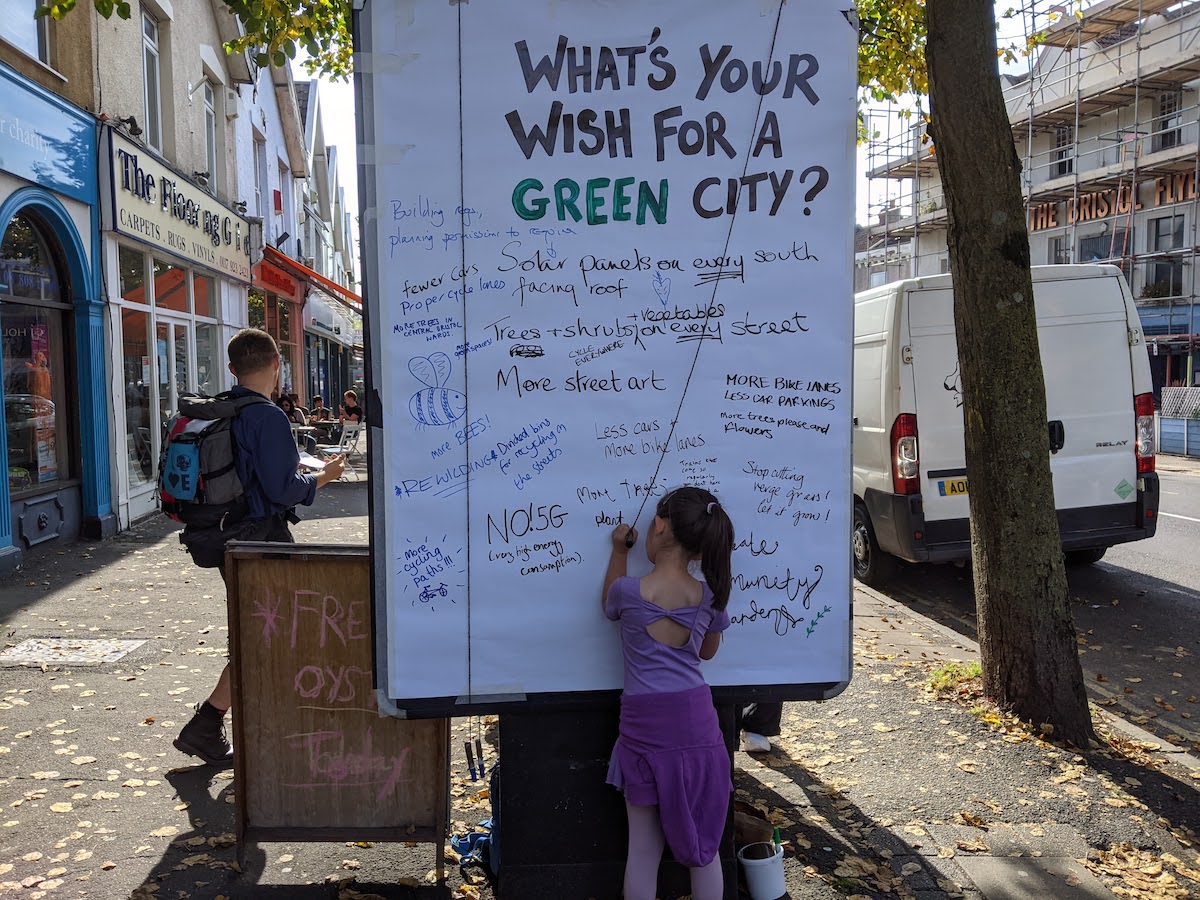 WHAT'S YOUR
WISH FOR A
GREEN CITY?
Building regs,
planning permissions to require
Solar panels on every south
facing roof
fewer cars
Proper cycle lanes
MORE TREES IN
CENTRAL BRISTOL
WARDS
+ vegetables
Trees + shrubs on every street
CYCLE
EVERYWHERE
More street art
MORE BIKE LANES
LESS CAR PARKINGS
More trees please and
flowers
more BEES!
REWILDING
Divided bins
for recycling in
the streets
Less cars
More bike lanes
Stop cutting
verge grass!
let it grow!
More
plant
NO! 5G
(very high energy
consumption).
More
cycling
paths!!!
munity
arden
FREE
OYS
Today
r charity
The Flooring G
CARPETS . RUGS . VINYLS . 0117 923 2423
THE BRISTOL FLY
RELAY
AO